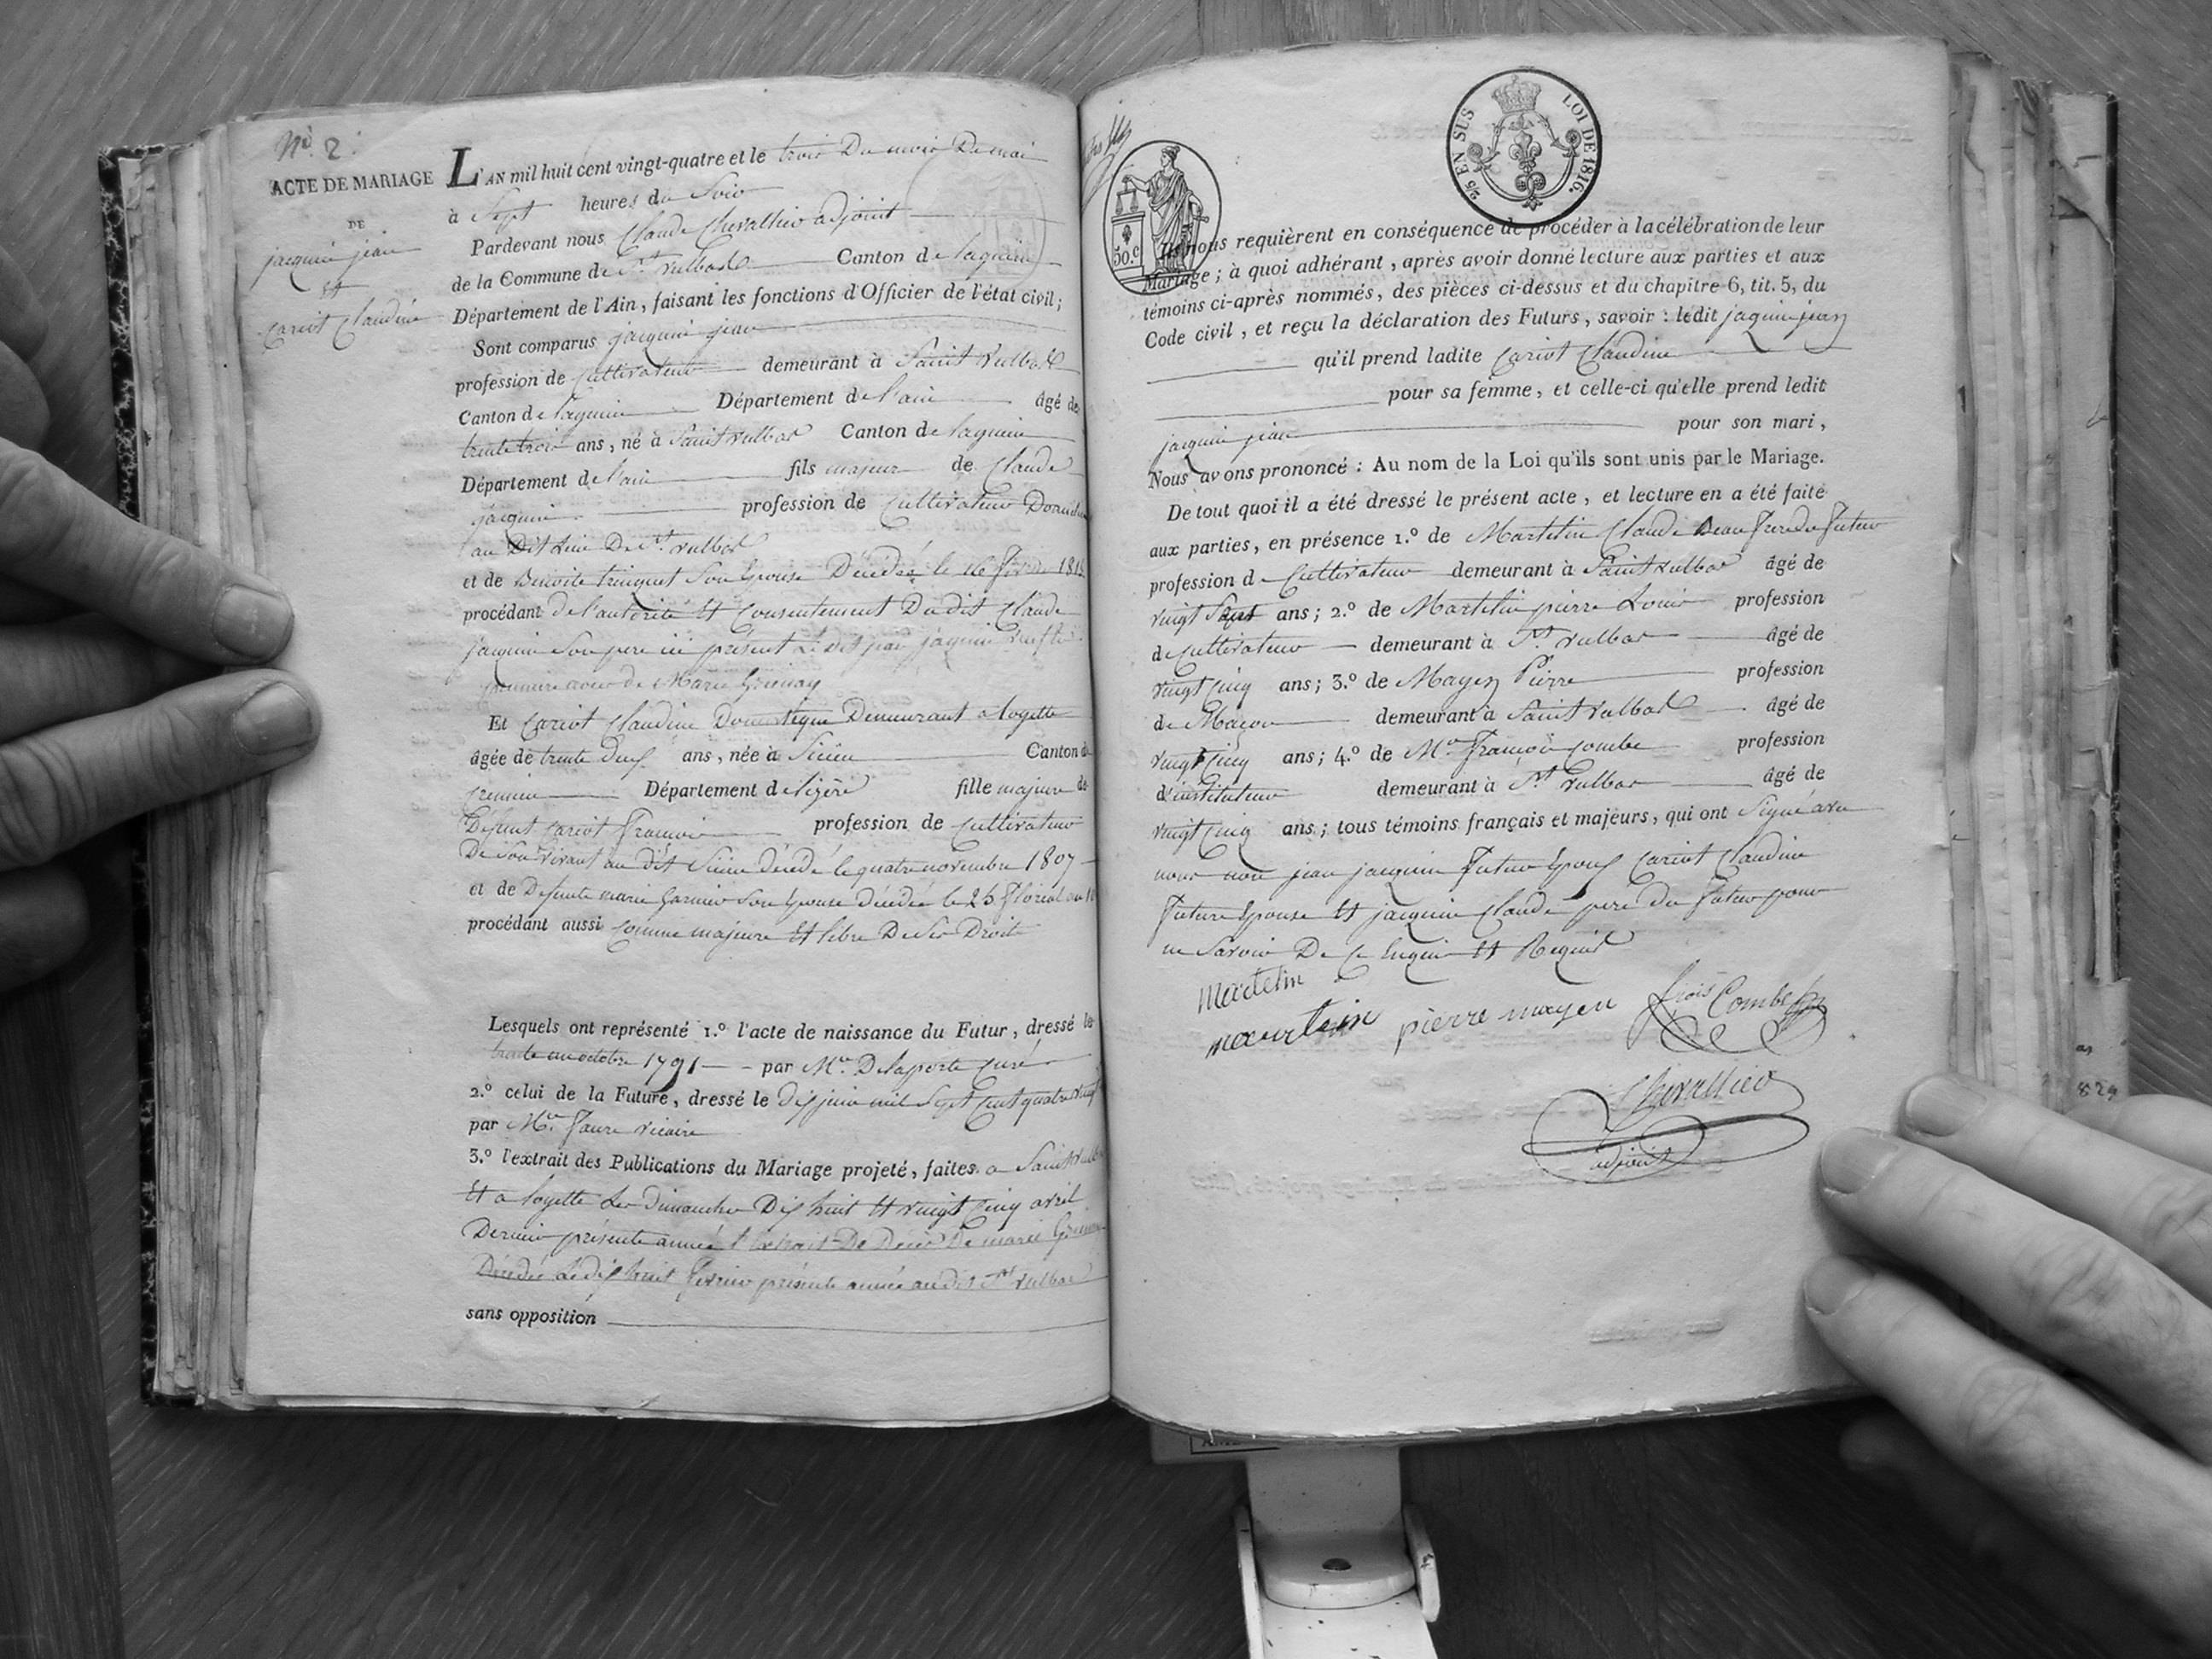 N.° 2.
ACTE DE MARIAGE
DE
jacquin jean
et
cariot Claudine
L'AN mil huit cent vingt-quatre et le trois Du mois De mai
à Sept heures du Soir
Pardevant nous Claude Chevallier adjoint
de la Commune de St. vulbas Canton de lagnieu
Département de l'Ain, faisant les fonctions d'Officier de l'état civil;
Sont comparus jacquin jean
profession de Cultivateur demeurant à Saint vulbas
Canton de lagnieu Département de l'ain âgé de
trente trois ans, né à Saint vulbas Canton de lagnieu
Département de l'ain fils majeur de Claude
jacquin profession de Cultivateur
au Dit lieu De St. vulbas
et de Benoite trinquet Son Epouse Décédée le
procédant de l'autorité Et Consentement Du dit Claude
jacquin Son pere ici présent Le dit jean jacquin
de Marie
Et cariot Claudine Domestique Demeurant a loyette
âgée de trente deux ans, née à Siccieu Canton de
cremieu Département de l'izère fille majeure de
Défunt cariot françois profession de Cultivateur
De Son vivant au dit Siccieu décédé le quatre novembre 1807
et de Defunte marie garnier Son Epouse décédée le 25 floréal an 10
procédant aussi comme majeure Et libre De Ses Droits
Lesquels ont représenté 1.° l'acte de naissance du Futur, dressé le
trente un octobre 1791 par Mr. Delaporte curé
2.° celui de la Future, dressé le dix juin mil Sept cent quatre vingt
par Mr. faure vicaire
3.° l'extrait des Publications du Mariage projeté, faites a Saint vulbas
Et a loyette Les Dimanches Dix huit Et vingt cinq avril
Dernier présente année l'Extrait De Décès De marie
Décédée Le dix huit fevrier présente année au dit St. vulbas
sans opposition
50.c
2/5 EN SUS LOI DE 1816.
Ils nous requièrent en conséquence de procéder à la célébration de leur
Mariage; à quoi adhérant, après avoir donné lecture aux parties et aux
témoins ci-après nommés, des pièces ci-dessus et du chapitre 6, tit. 5, du
Code civil, et reçu la déclaration des Futurs, savoir : ledit jaquin jean
qu'il prend ladite Cariot Claudine
pour sa femme, et celle-ci qu'elle prend ledit
jacquin jean pour son mari,
Nous avons prononcé : Au nom de la Loi qu'ils sont unis par le Mariage.
De tout quoi il a été dressé le présent acte, et lecture en a été faite
aux parties, en présence 1.° de Martelin Claude Beau frere du futur
profession de Cultivateur demeurant à Saint vulbas âgé de
vingt Sept ans; 2.° de Martelin pierre Louis profession
de cultivateur demeurant à St. vulbas âgé de
vingt cinq ans; 3.° de Mayen Pierre profession
de Maçon demeurant à Saint vulbas âgé de
vingt cinq ans; 4.° de Mr. françois combe profession
d'instituteur demeurant à St. vulbas âgé de
vingt cinq ans; tous témoins français et majeurs, qui ont Signé avec
nous non jean jacquin futur Epoux Cariot Claudine
future Epouse Et jacquin Claude pere du futur pour
ne Savoir De ce Enquis Et Requis
martelin
martelin pierre mayen frois Combe
Chevallier
adjoint